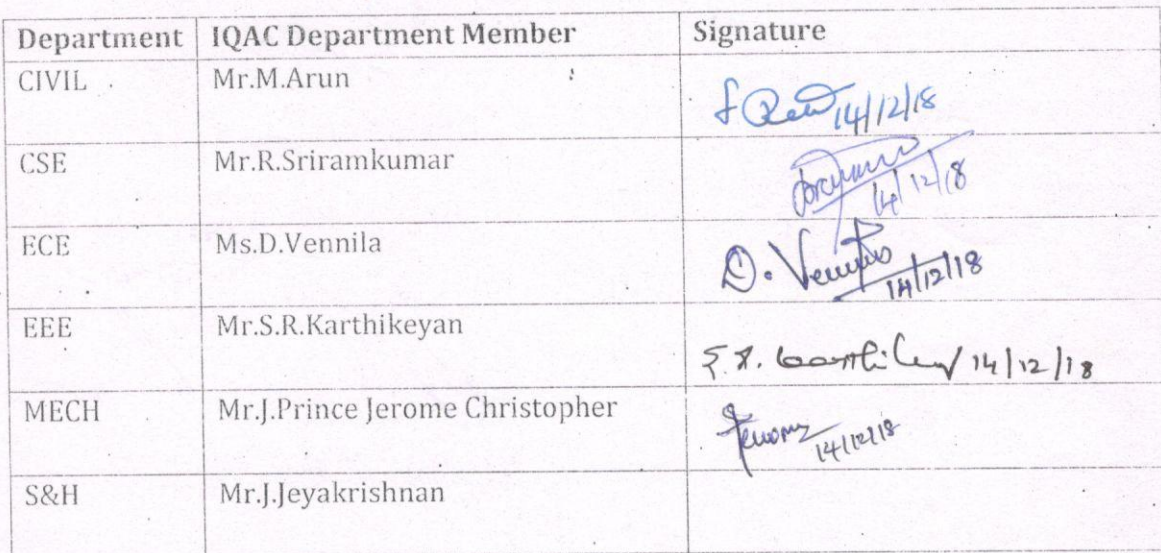 Department IQAC Department Member Signature
CIVIL Mr.M.Arun 14/12/18
CSE Mr.R.Sriramkumar 14/12/18
ECE Ms.D.Vennila D. 14/12/18
EEE Mr.S.R.Karthikeyan 14/12/18
MECH Mr.J.Prince Jerome Christopher 14/12/18
S&H Mr.J.Jeyakrishnan